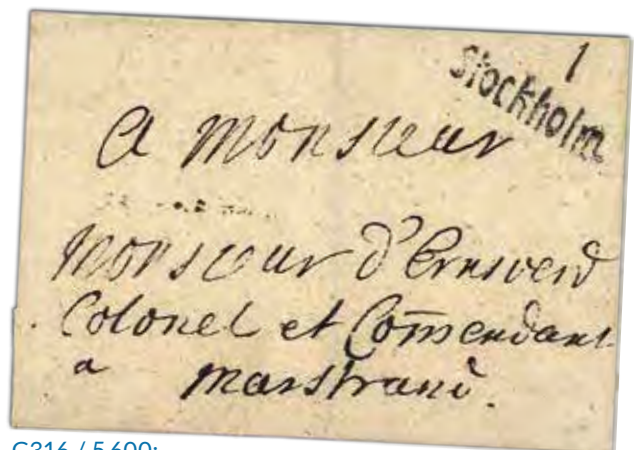 1
Stockholm
A Monsieur
Monsieur d'Ernsverd
Colonel et Com̄endant
a Marstrand.
G316 / 5 600:-